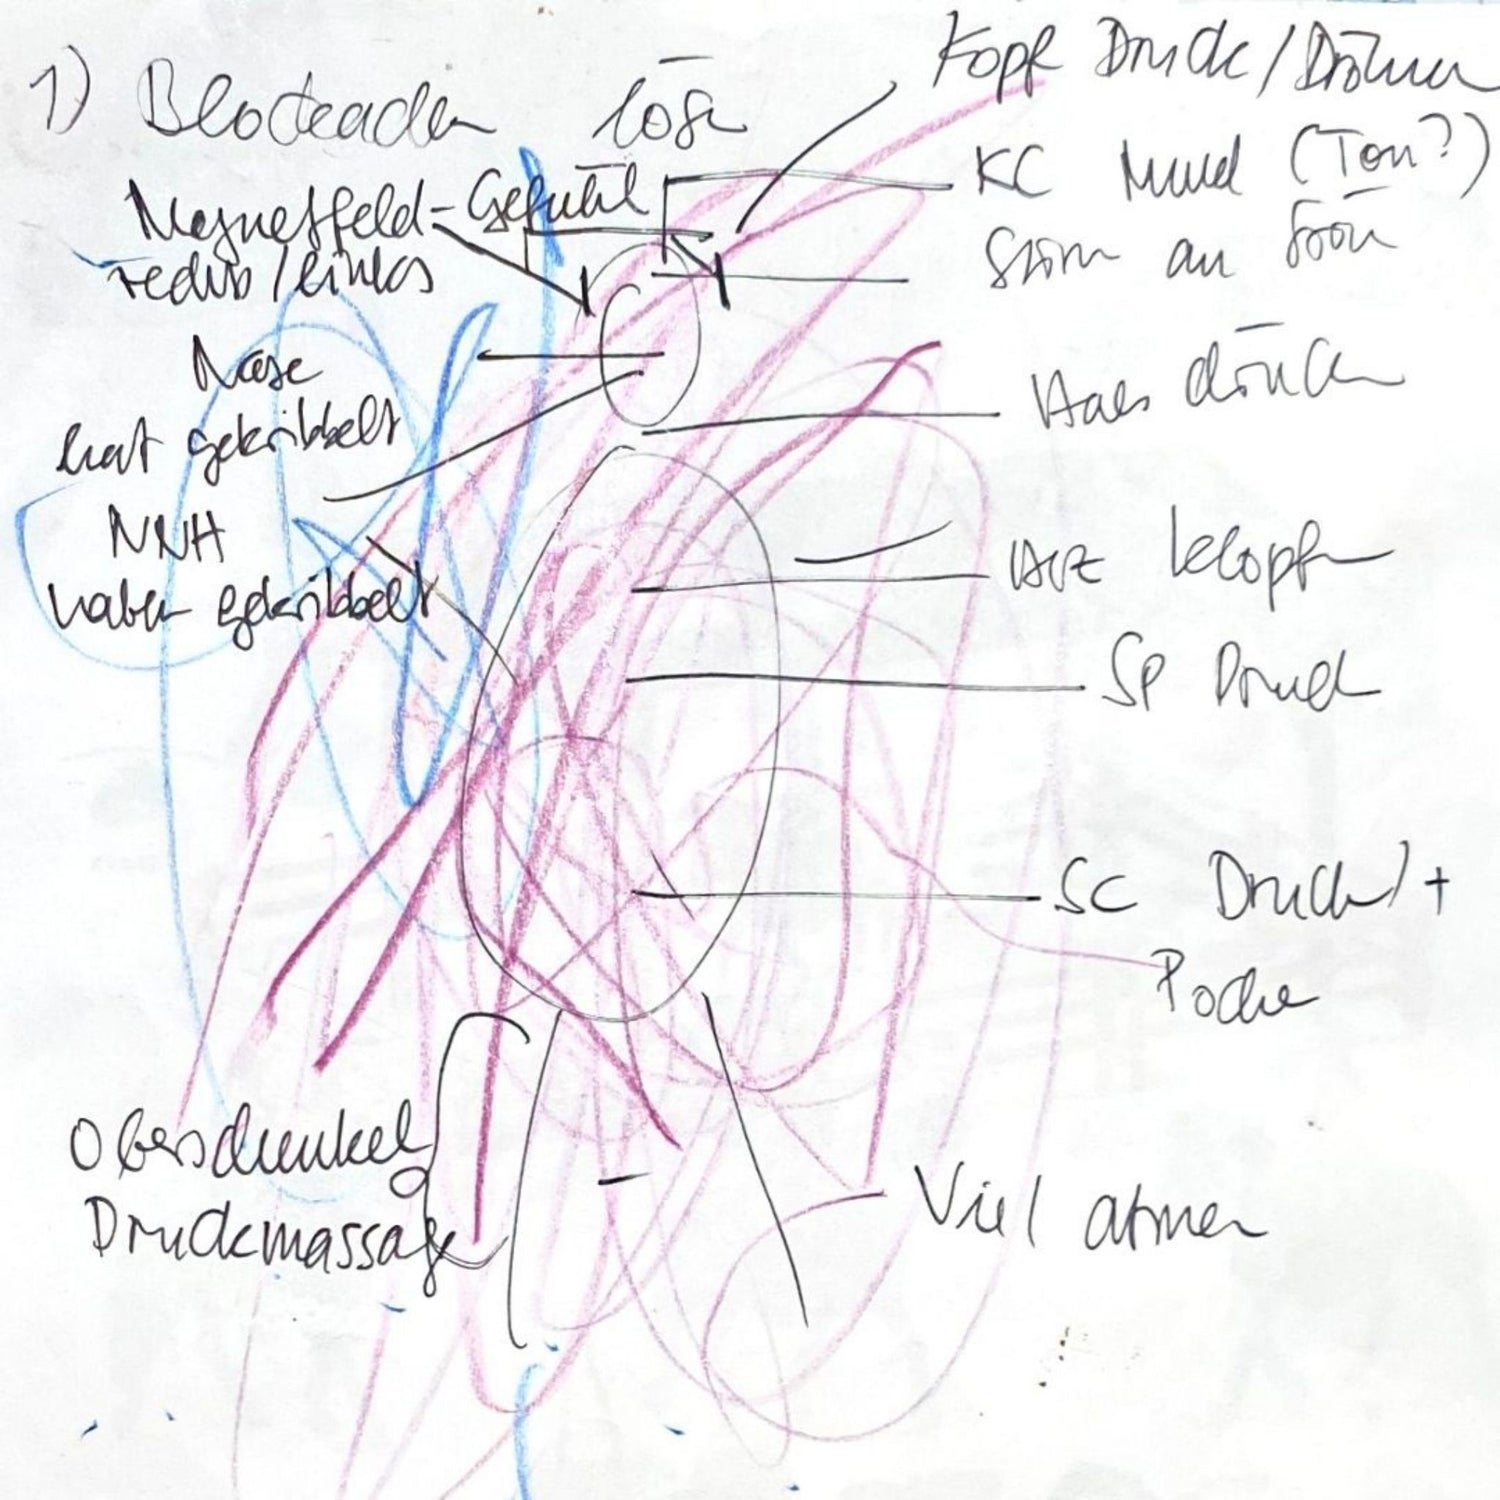 1) Blockaden lösen
Kopf Druck / Dröhnen
KC Mund (Ton?)
Stirn an Frön
Magnetfeld-Gefühl
rechts / links
Nase
hat gekribbelt
Hals drücken
NNH
haben gekribbelt
Herz klopfen
SP Druck
SC Druck +
Pochen
Oberschenkel
Druckmassage
Viel atmen